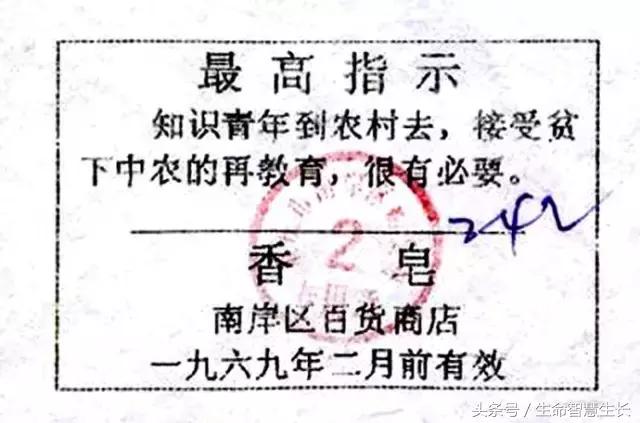 最高指示
知识青年到农村去，接受贫
下中农的再教育，很有必要。
242
2
香皂
南岸区百货商店
一九六九年二月前有效
头条号／生命智慧生长